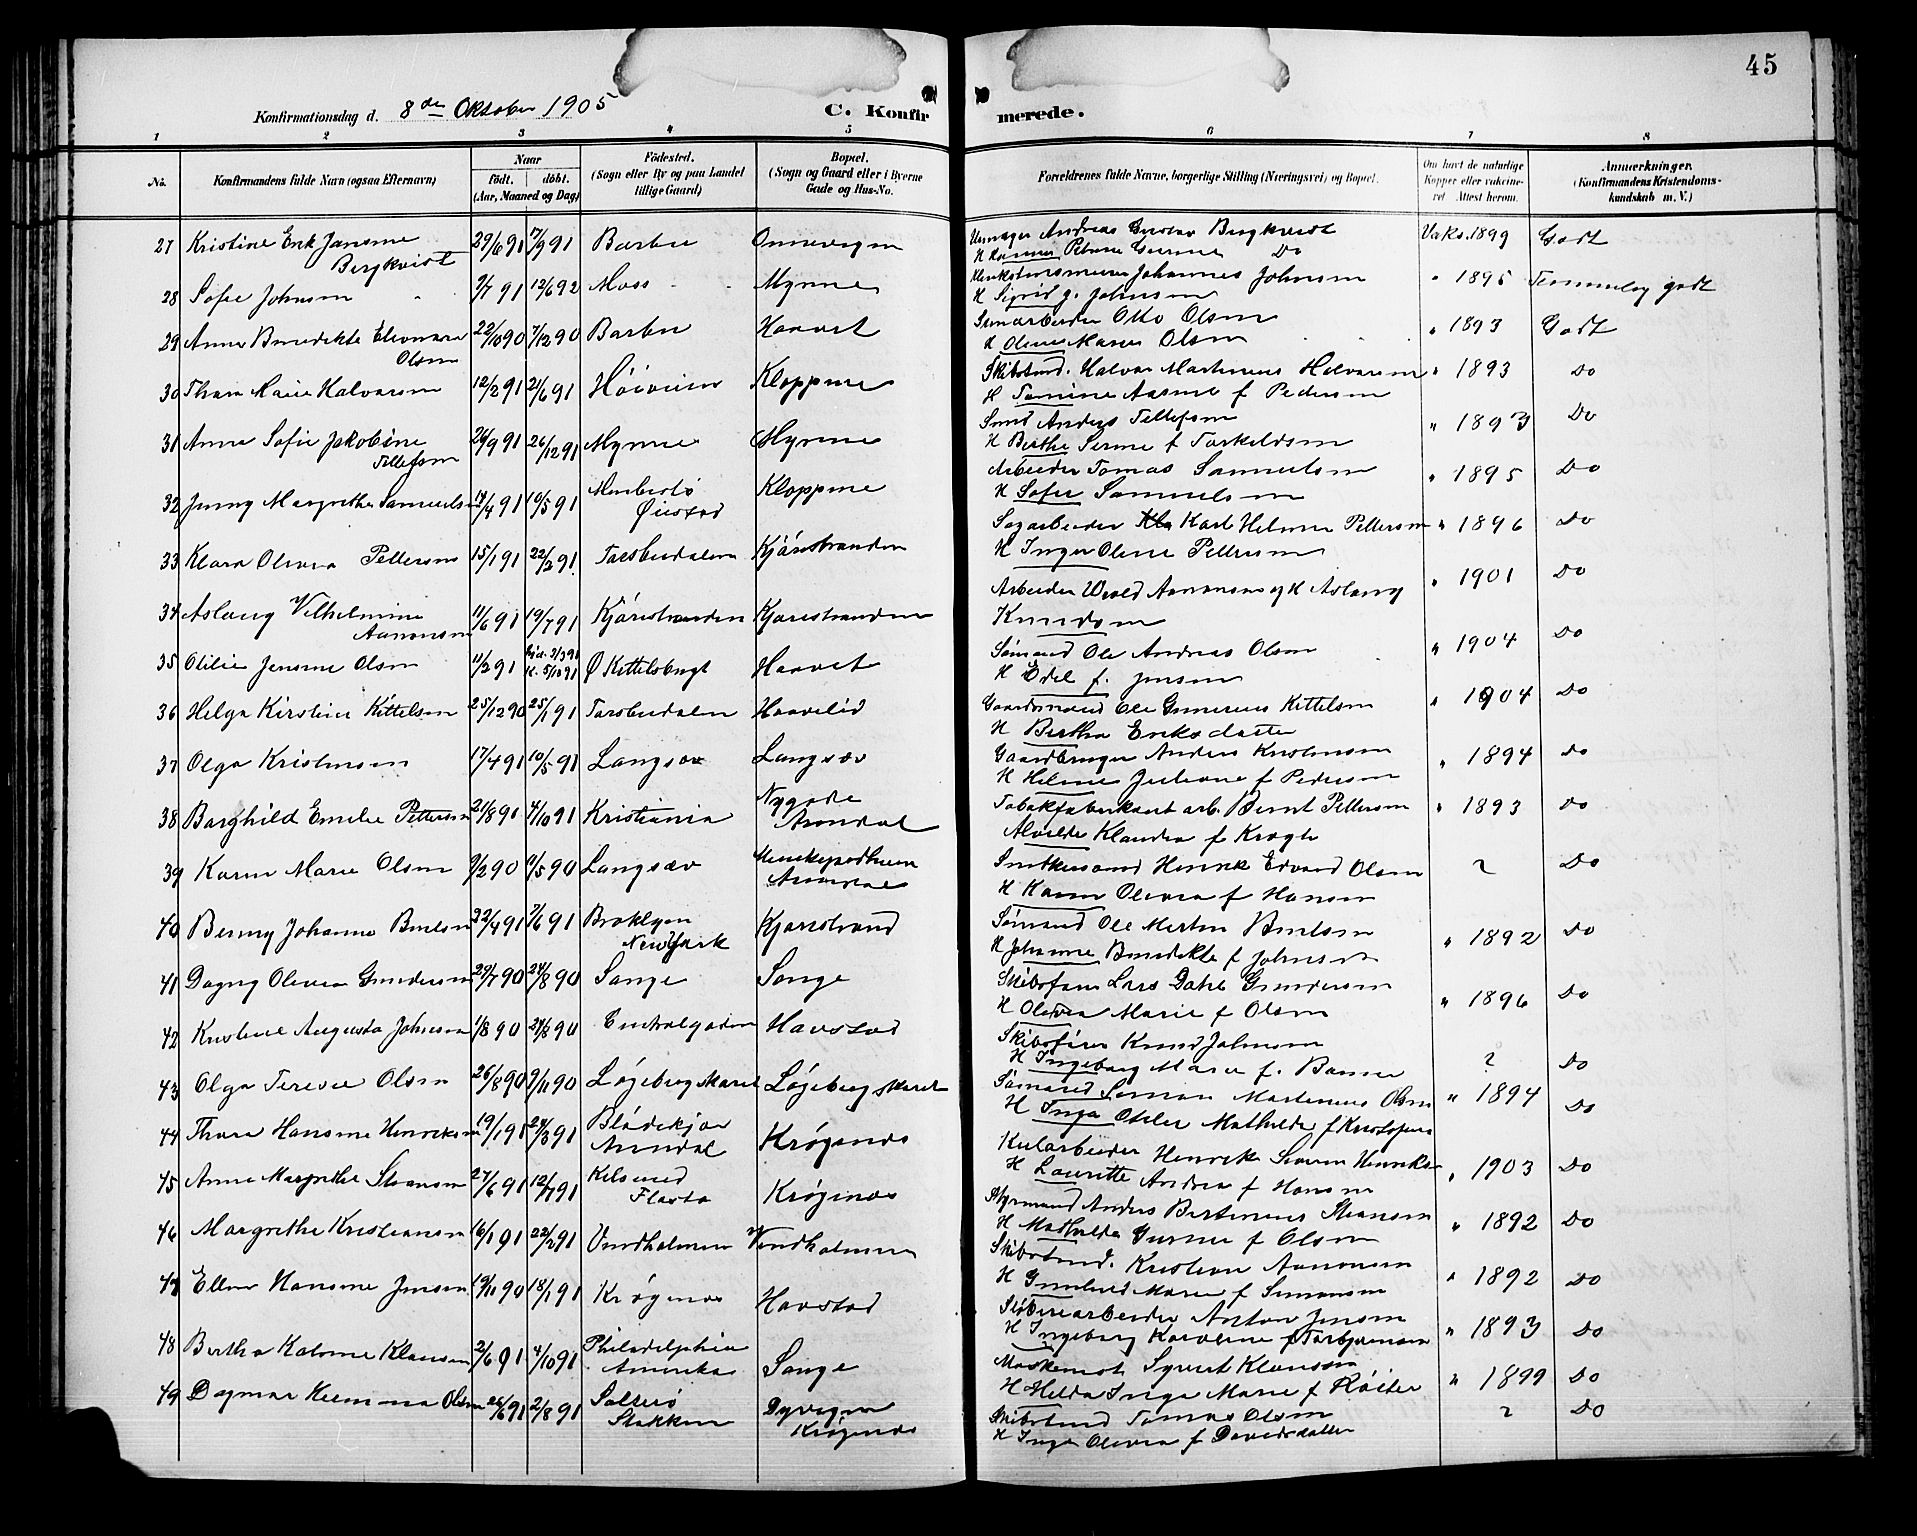 45
Konfirmationsdag d. 8de Oktober 1905
C. Konfirmerede.
1 2 3 4 5 6 7 8
No.
Konfirmandens fulde Navn (ogsaa Efternavn)
Naar
födt. döbt.
(Aar, Maaned og Dag)
Födested.
(Sogn eller By og paa Landet
tillige Gaard)
Bopæl.
(Sogn og Gaard eller i Byerne
Gade og Hus-No.
Forældrenes fulde Navne, borgerlige Stilling (Næringsvei) og Bopæl.
Om havt de naturlige
Kopper eller vakcine-
ret Attest herom.
Anmærkninger.
(Konfirmandens Kristendoms-
kundskab m. V.)
27 Kristine 29/6 91 17/9 91 Barbu Andreas Gustav Bergkvist Vaks. 1899 Godt
Bergkvist Do
28 Sofie Johnsen 2/7 91 12/6 92 Moss Myrene Johannes Johnsen " 1895 Temmelig godt
H Sigrid J. Johnsen
29 Anne Benedikte Eleonore 22/10 90 7/12 90 Barbu Haavet Otto Olsen " 1893 Godt
Olsen H Olene Marie Olsen
30 Thora Marie Halvorsen 12/2 91 21/6 91 Kloppene Skibstmd. Halvor Martinius Halvorsen " 1893 Do
H Tomine Aasine f Pedersen
31 Anna Sofie Jakobine 26/9 91 26/12 91 Myrene Myrene Smed Anders Tellefsen " 1893 Do
Tellefsen H Berthe Serine f Torkeldsen
32 Jenny Margrethe Samuelsen 14/4 91 10/5 91 Øiestad Kloppene Arbeider Tomas Samuelsen " 1895 Do
H Sofie Samuelsen
33 Klara Olivia Pettersen 15/1 91 22/2 91 Torsbudalen Kjörrestranden Sagarbeider Karl Helmer Pettersen " 1896 Do
H Inger Oline Pettersen
34 Aslaug Vilhelmine 11/6 91 19/7 91 Kjörrestranden Kjørrestranden Arbeider Aanonsen og H Aslaug " 1901 Do
Aanonsen Knudsen
35 Otilie Jensine Olsen 11/2 91 3/3 91 5/10 91 Ø Kittelsbugt Haavet Sømand Ole Andreas Olsen " 1904 Do
H Edel f. Jensen
36 Helga Kirstine Kittelsen 25/12 90 25/1 91 Torsbudalen Haavelid Gaardmand Ole Gunerius Kittelsen " 1904 Do
H Bertha Eriksdatter
37 Olga Kristensen 17/4 91 10/5 91 Langsæv Langsæv Gaardbruger Anders Kristensen " 1894 Do
H Helene Juliane f Pedersen
38 Borghild Emilie Pettersen 21/8 91 4/10 91 Kristiania Nygade Arendal Tobakfabrikant arb. Bernt Pettersen " 1893 Do
Alvilde Klaudia f Krogh
39 Karen Marie Olsen 9/2 90 11/5 90 Langsæv Arendal Henrik Edvard Olsen 2 Do
H Karen Olivia f Hansen
40 Benny Johanne Berntsen 22/4 91 7/6 91 Broklyen New York Kjørrestrand Sømand Ole Martin Berntsen " 1892 Do
H Johanne Benedikte f Johnsen
41 Dagny Olivia Gundersen 29/7 90 24/8 90 Songe Songe Skibsføm Lars Dahl Gundersen " 1896 Do
H Olivia Marie f Olsen
42 Kristine Augusta Johnsen 1/8 90 24/8 90 Havstad Skibsfører Knud Johnsen 2 Do
H Ingeborg Marie f. Banne
43 Olga Teresie Olsen 26/8 90 9/11 90 Løgebergskaret Løgebergskaret Sømand Simon Martinius Olsen " 1894 Do
H Inga Otilie Mathilde f Kristofers
44 Thora Hansine Henriksen 19/1 91 24/3 91 Blødekjær Arendal Krøgenes Kularbeider Henrik Severin Henriksen " 1903 Do
H Lauritte Andrea f Hansen
45 Anne Margrethe Steansen 27/6 91 12/7 91 Kilsund Flosta Krøgenes Styrmand Anders Bertinius Steansen " 1892 Do
H Mathilde Gurine f Olsen
46 Margrethe Kristiansen 16/1 91 22/2 91 Vindholmen Vindholmen Skibstmd. Kristian Aanonsen " 1892 Do
H Gunhild Marie f Simonsen
47 Ellen Hansine Jensen 19/11 90 18/1 91 Krøgenes Havstad Støberiarbeider Anton Jensen " 1893 Do
H Ingeborg Karoline f Torbjørnsen
48 Bertha Kalome Klausen 2/6 91 4/10 91 Philadelphia Amerika Songe Maskinist Syvert Klausen " 1899 Do
H Hilda Inga Marie f Röiter
49 Dagmar Olsen 26/6 91 2/8 91 Stokken Dyvagen Krøgenes Skibstmd Tomas Olsen 2 Do
H Inga Olivia f Davidsdatter